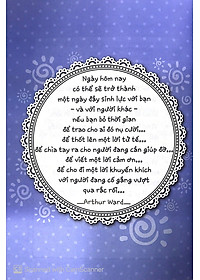 Ngày hôm nay
có thể sẽ trở thành
một ngày đầy sinh lực với bạn
- và với người khác -
nếu bạn bỏ thời gian
để trao cho ai đó nụ cười...
để thốt lên một lời tử tế...
để chìa tay ra cho người đang cần giúp đỡ...
để viết một lời cảm ơn...
để cho đi một lời khuyến khích
với người đang cố gắng vượt
qua rắc rối...
__Arthur Ward__